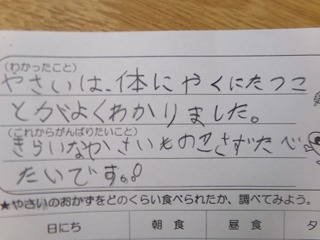 (わかったこと)
やさいは、体にやくにたつこ
とがよくわかりました。
(これからがんばりたいこと)
きらいなやさいものこさずたべ
たいです。
★やさいのおかずをどのくらい食べられたか、調べてみよう。
日にち 朝食 昼食 タ